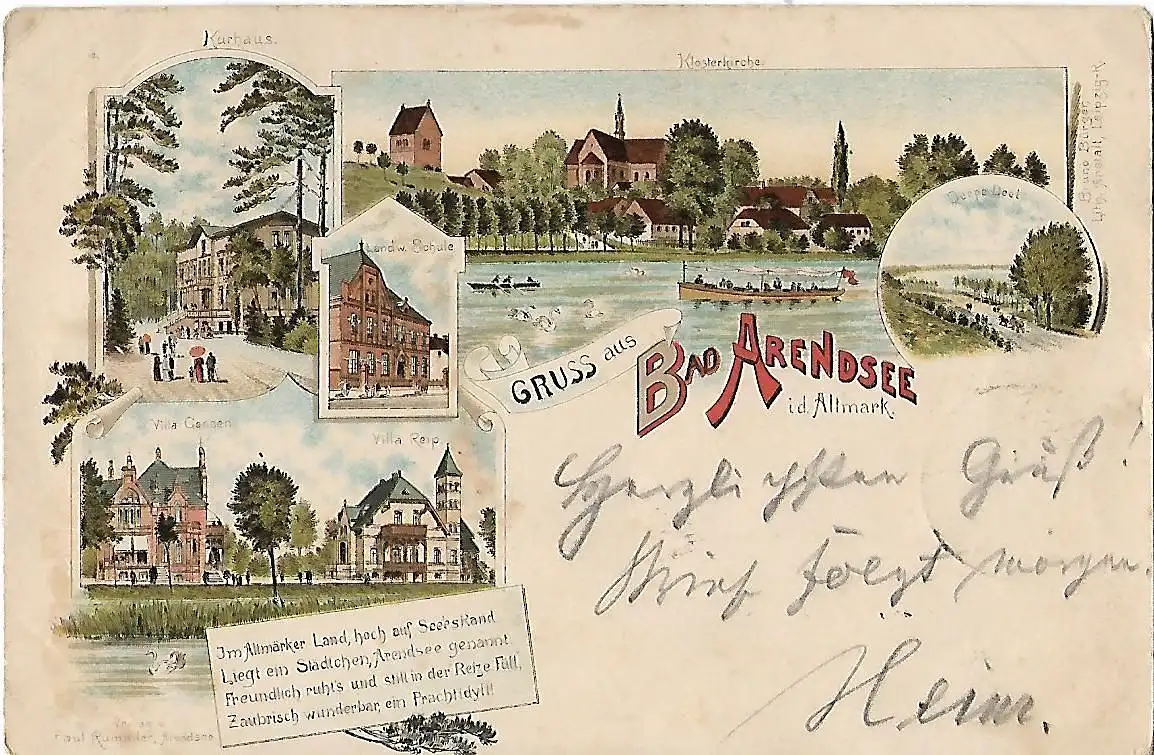 Kurhaus.
Klosterkirche.
Bruno Bürger
Lith. Anstalt, Leipzig-R
Landw. Schule
GRUSS aus
BAD ARENDSEE
i.d. Altmark.
Villa
Villa
Im Altmärker Land, hoch auf Seees Rand
Liegt ein Städtchen, Arendsee genannt,
Freundlich ruht's und still in der Reize Füll,
Zaubrisch wunderbar, ein Prachtidyll!
Paul Arendsee
Herzlichsten Gruß!
Brief folgt morgen.